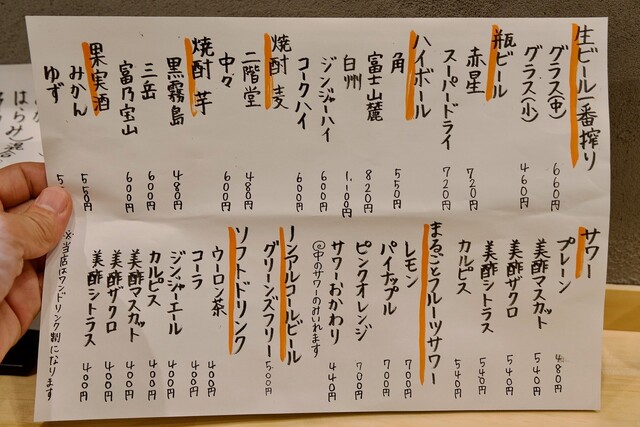 生ビール一番搾り
グラス(中) 660円
グラス(小) 460円
瓶ビール
赤星 720円
スーパードライ 720円
ハイボール
角 550円
富士山麓 820円
白州 1,100円
ジンジャーハイ 600円
コークハイ 600円
焼酎 麦
二階堂 480円
中々 600円
焼酎 芋
黒霧島 480円
三岳 600円
富乃宝山 600円
果実酒
みかん 550円
ゆず
サワー
プレーン 480円
美酢マスカット 540円
美酢ザクロ 540円
美酢シトラス 540円
カルピス 540円
まるごとフルーツサワー
レモン 700円
パイナップル 700円
ピンクオレンジ 700円
サワーおかわり 440円
中のサワーのみいれます
ノンアルコールビール
グリーンズフリー 500円
ソフトドリンク
ウーロン茶 400円
コーラ 400円
ジンジャーエール 400円
カルピス 400円
美酢マスカット 400円
美酢ザクロ 400円
美酢シトラス 400円
※当店はワンドリンク制になります
はらみ